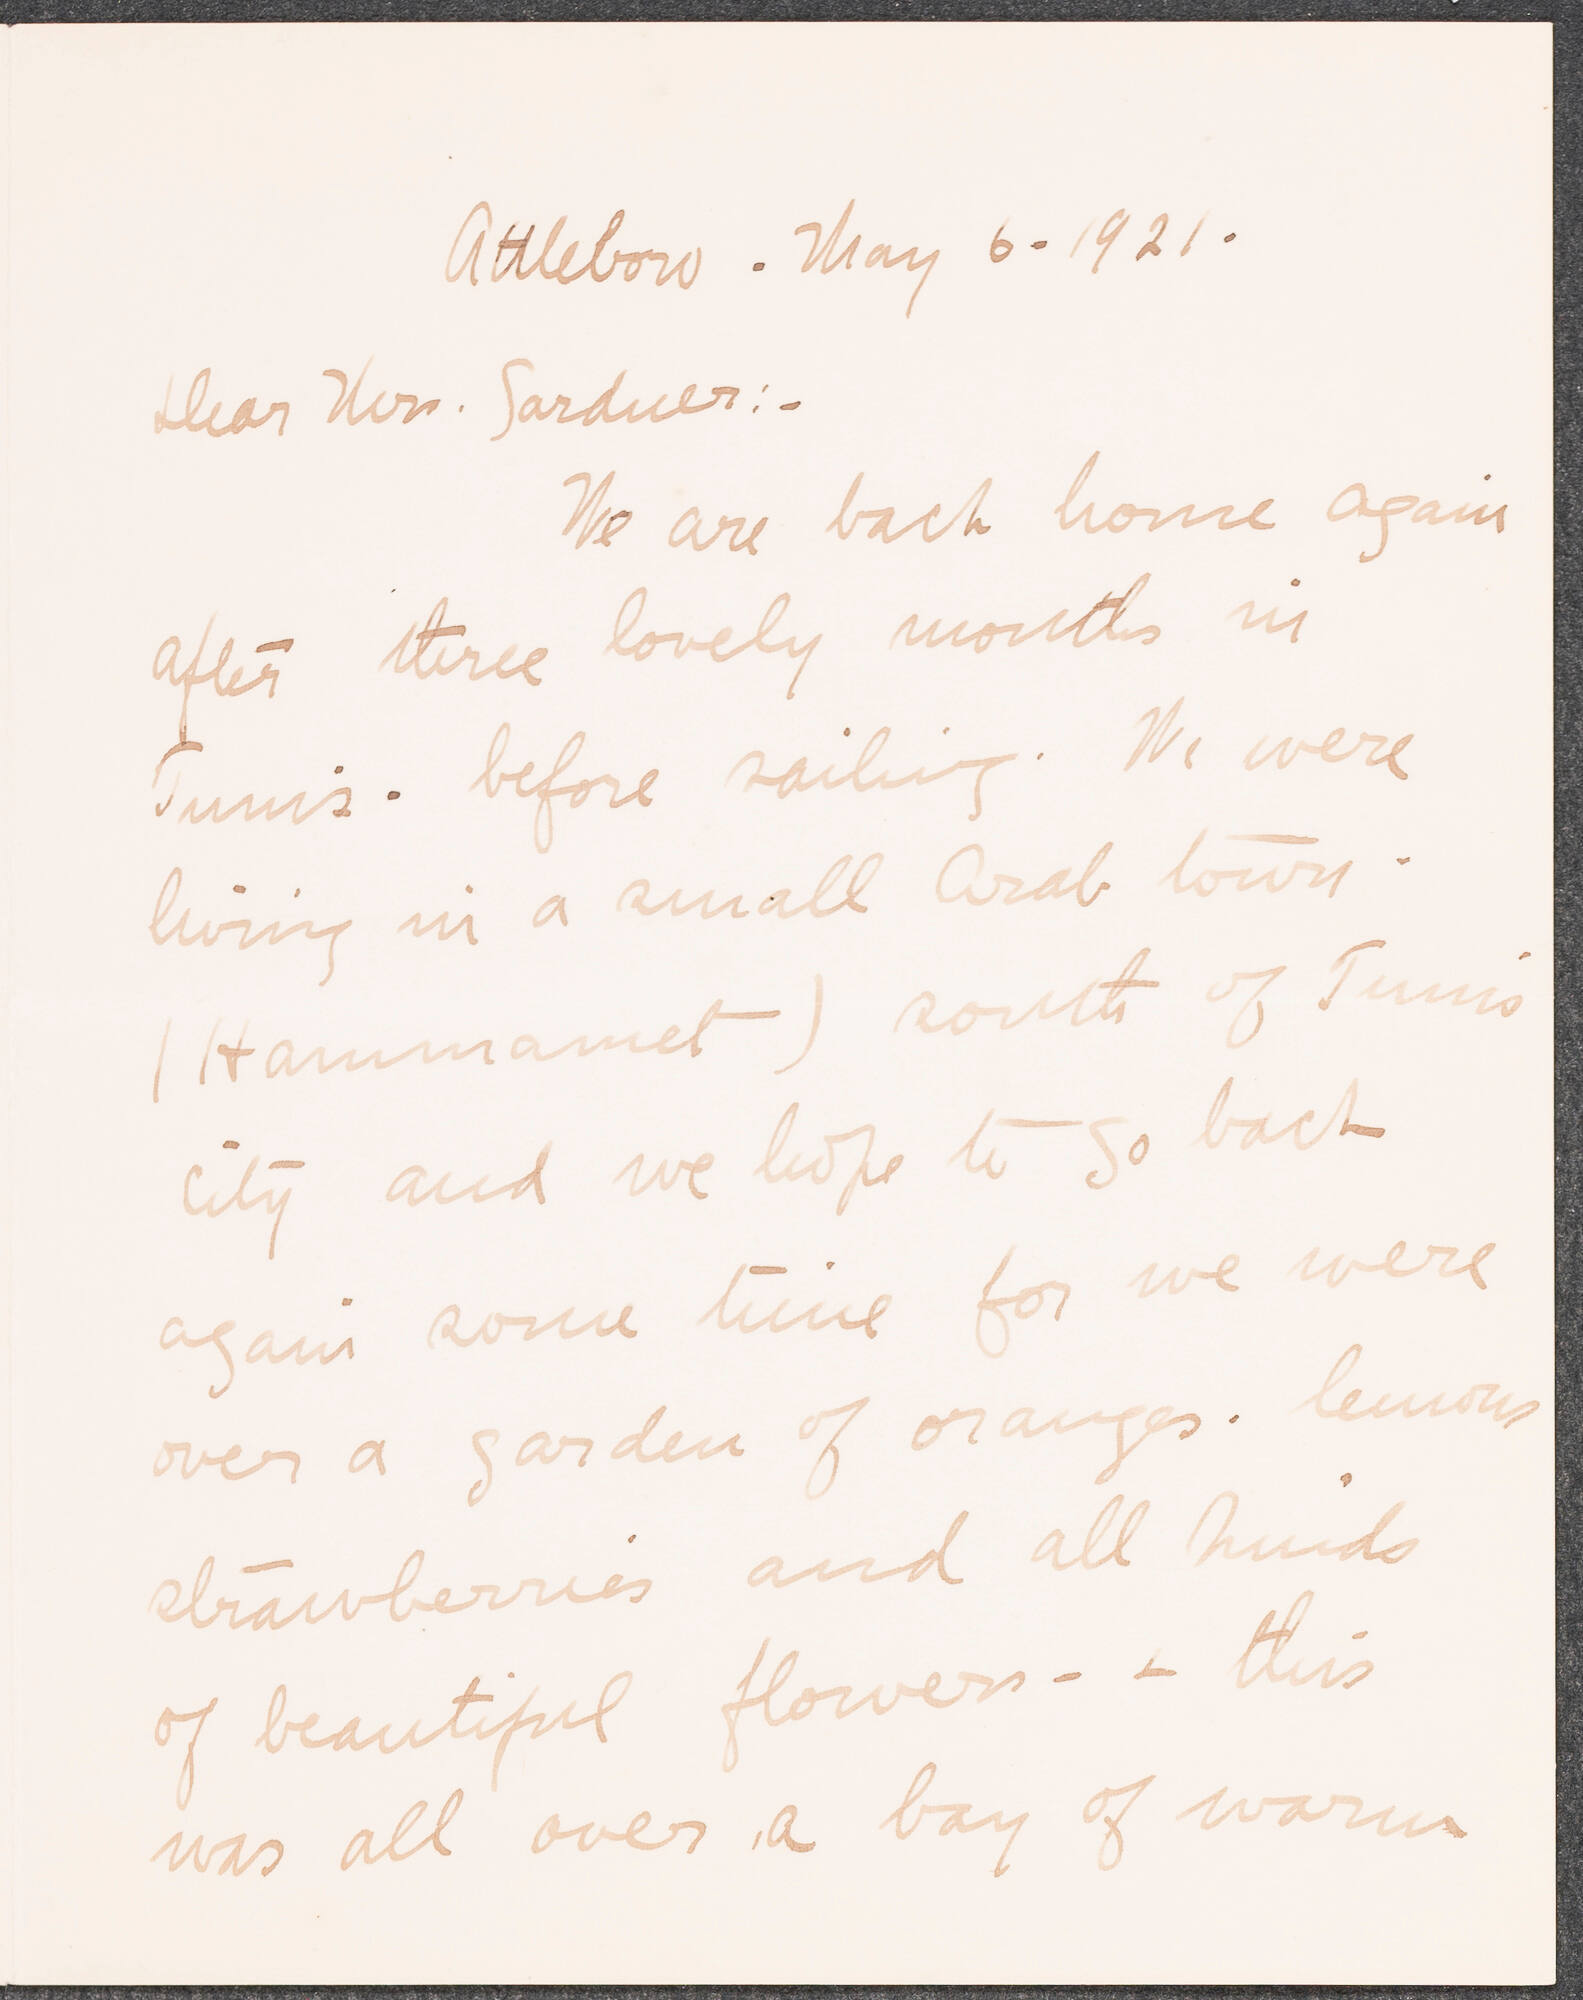 Attleboro . May 6 - 1921 .
Dear Mrs. Gardner : -
We are back home again
after three lovely months in
Tunis . before sailing . We were
living in a small Arab town -
( Hammamet ) south of Tunis
city and we hope to go back
again some time for we were
over a garden of oranges . lemons
strawberries and all kinds
of beautiful flowers - - this
was all over a bay of warm